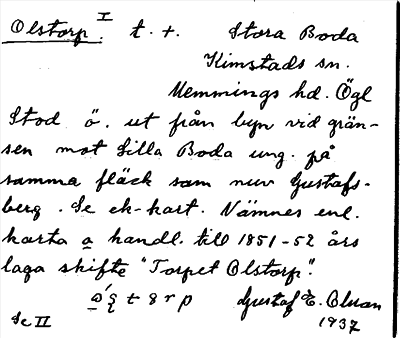 Olstorp. I t. +. Stora Boda
Kimstads sn.
Memmings hd. Ögl
Stod ö. ut från byn vid grän-
sen mot Lilla Boda ung. på
samma fläck som nuv Gustafs-
berg. Se ek-kart. Nämnes enl.
karta a handl. till 1851-52 års
laga skifte "Torpet Olstorp".
Gustaf E. Olsson
Se II 1937